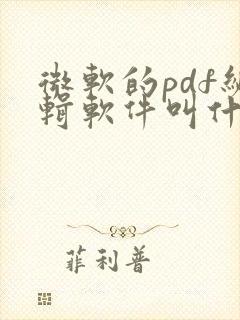 微軟的pdf編
輯軟件叫什
菲利普